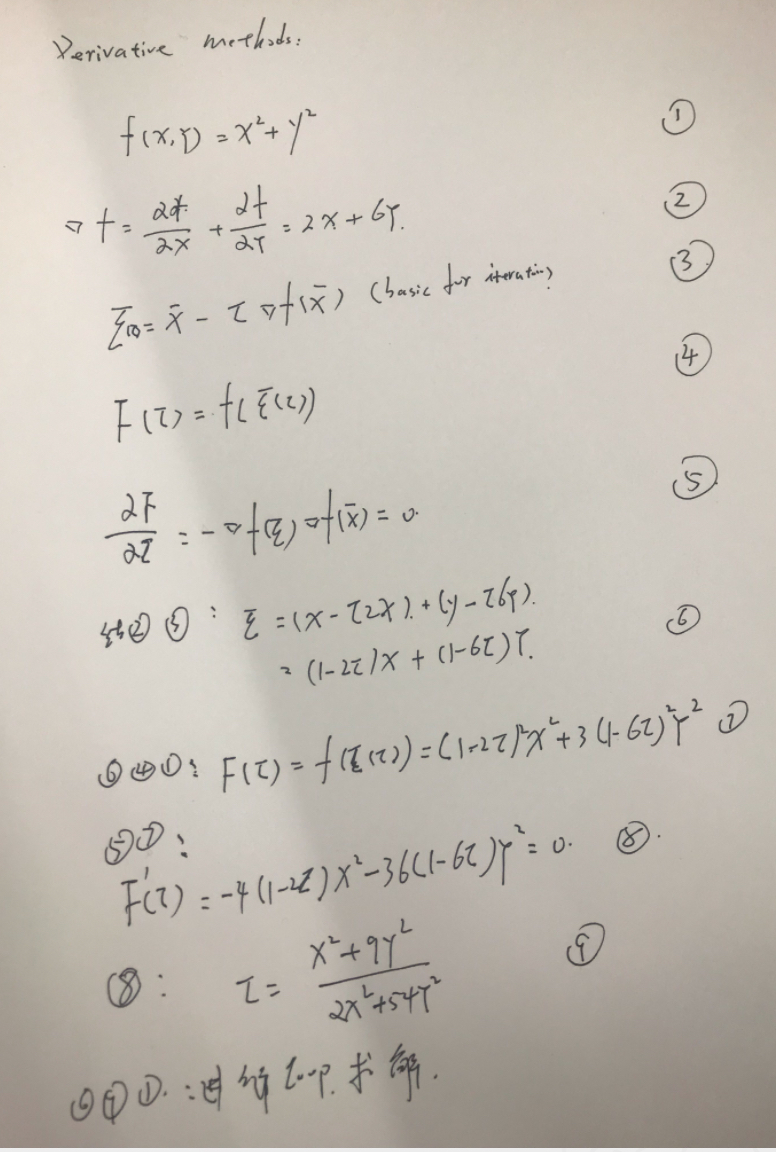 Derivative methods:
f(x,y) = x² + y² ①
∇f = ∂f/∂x + ∂f/∂y = 2x + 6y. ②
ξ̄(τ) = x̄ - τ∇f(x̄) (basic for iteration) ③
F(τ) = f(ξ̄(τ)) ④
∂F/∂τ = -∇f(ξ̄)∇f(x̄) = 0. ⑤
②③: ξ̄ = (x - τ2x) + (y - τ6y). ⑥
= (1-2τ)x + (1-6τ)y.
⑥④①: F(τ) = f(ξ̄(τ)) = (1-2τ)²x² + 3(1-6τ)²y² ⑦
⑤⑦:
F'(τ) = -4(1-2τ)x² - 36(1-6τ)y² = 0. ⑧.
⑧: τ = (x² + 9y²)/(2x² + 54y²) ⑨
⑥⑨①: loop. 求解.